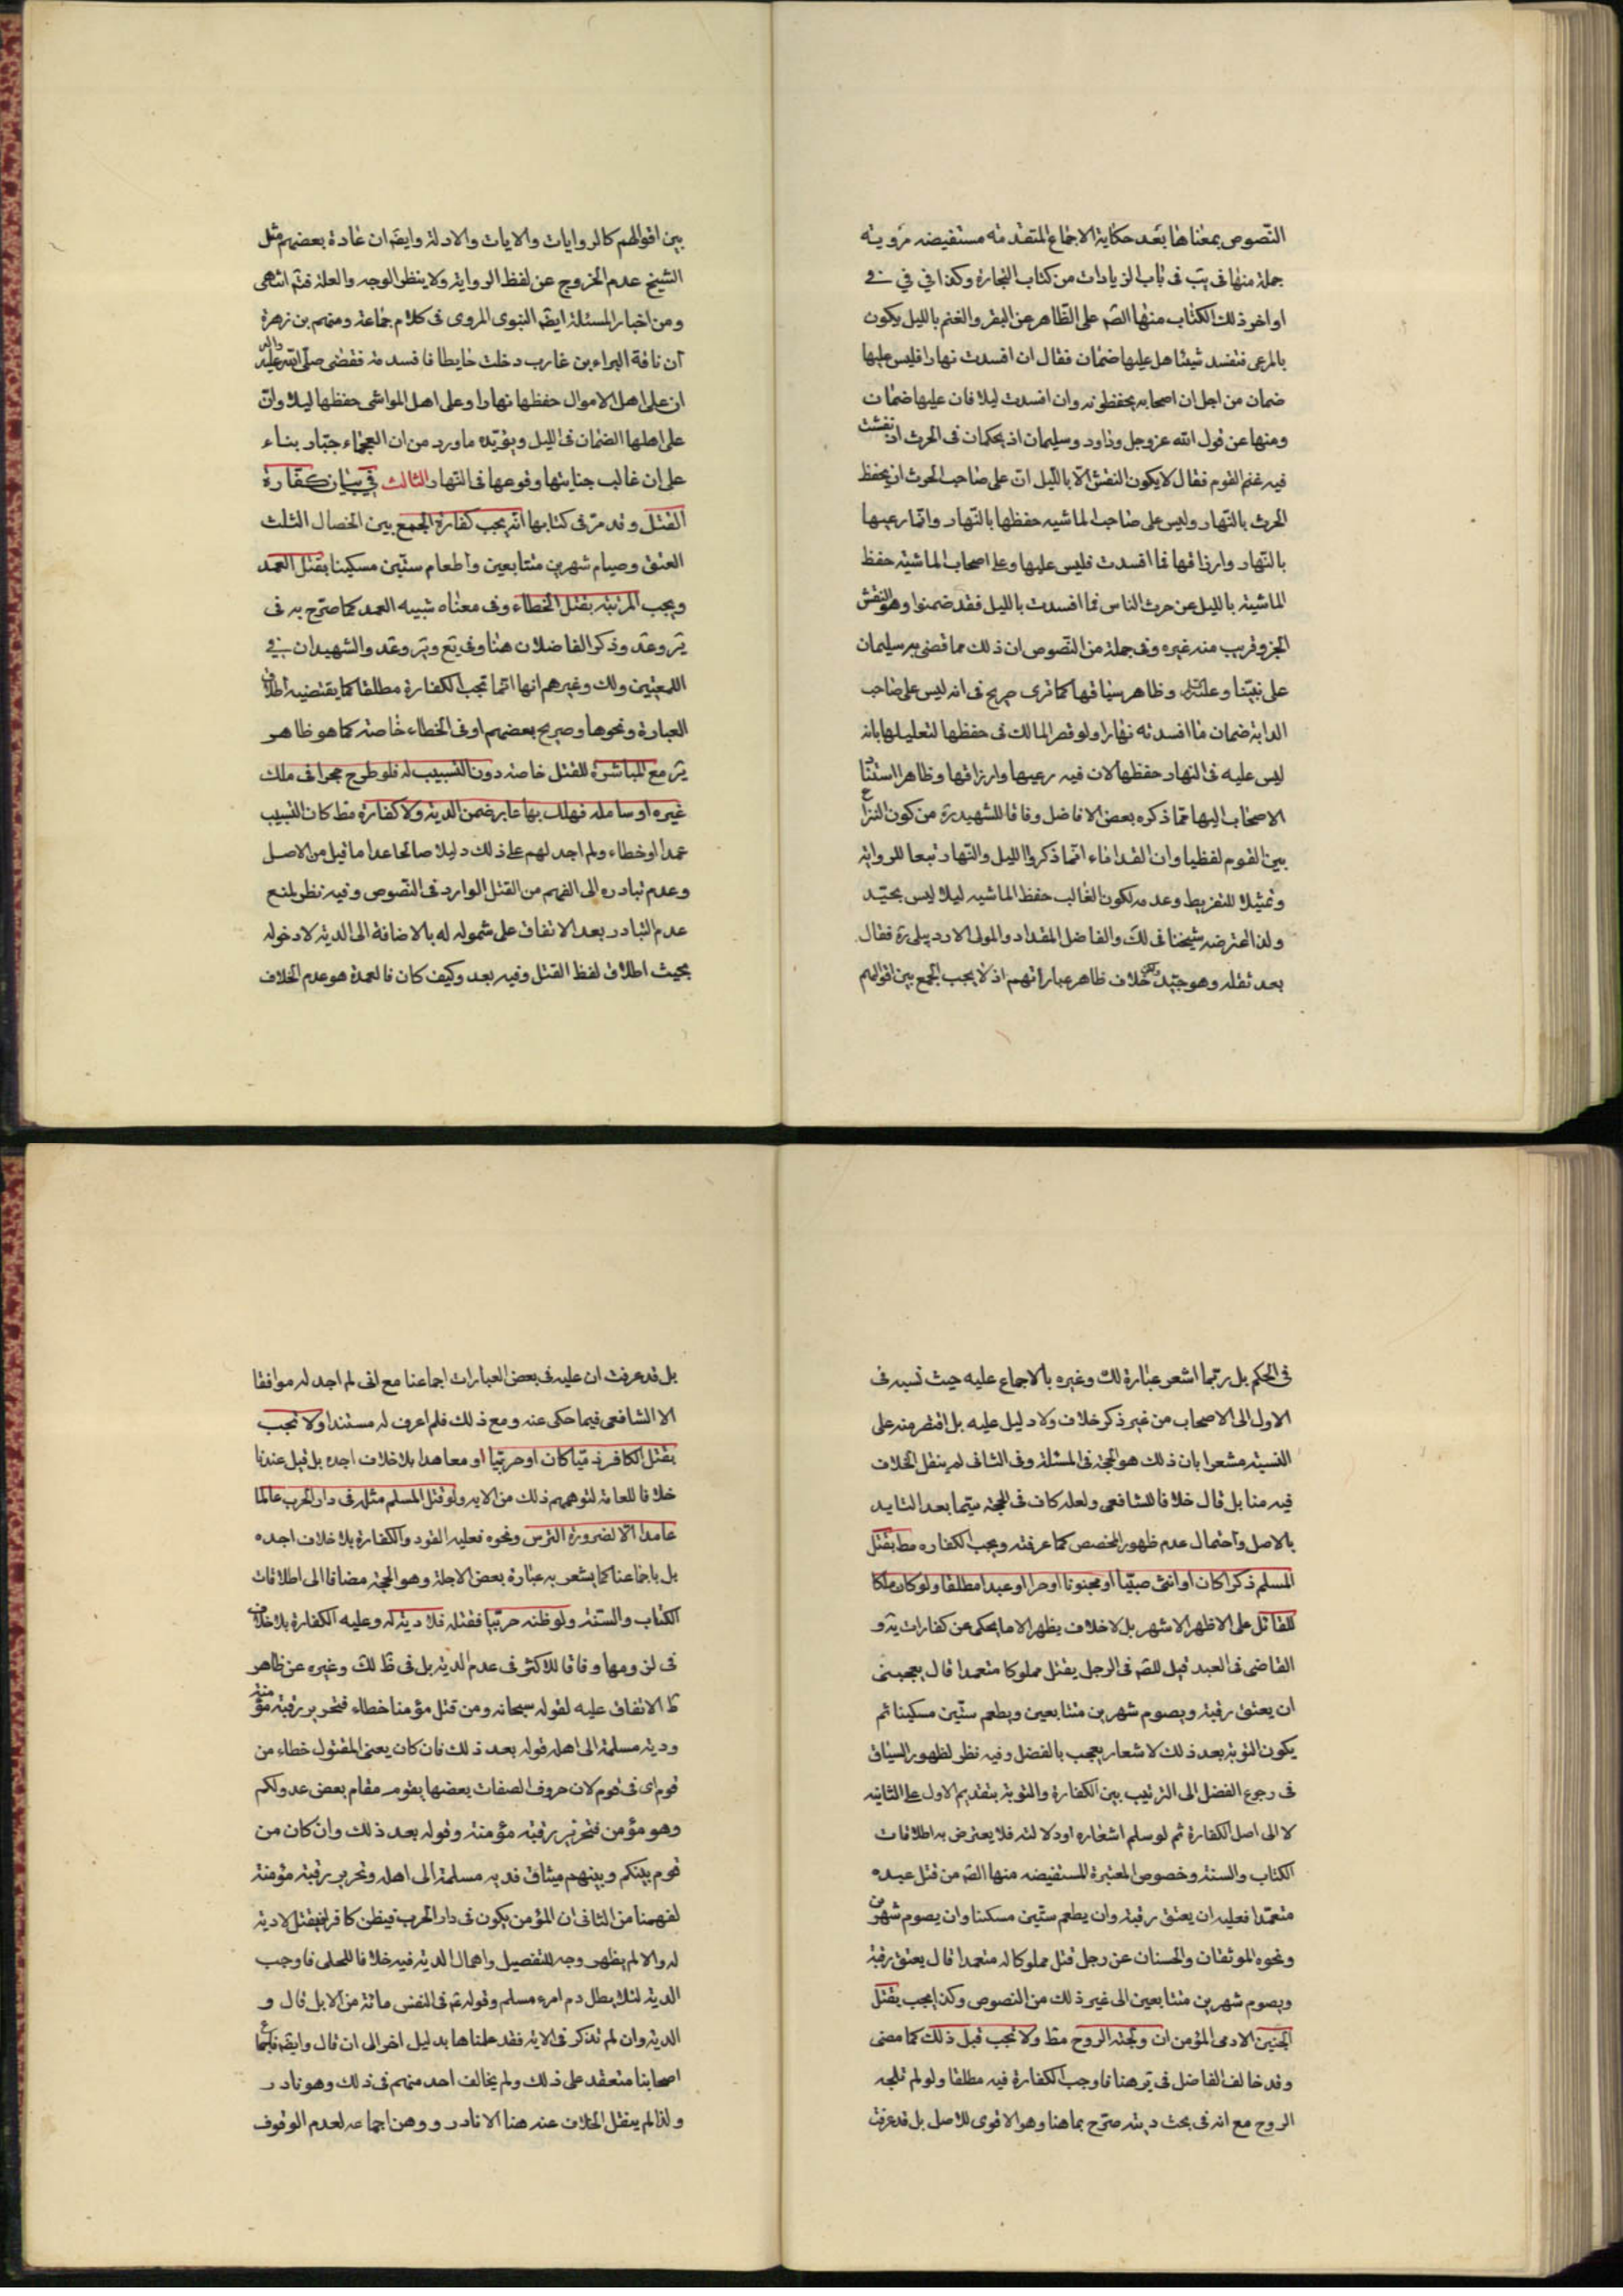 النصوص بمعناها بعد حكاية الاجماع المتقدمه مستفيضه مروية
جملة منها فى يب فى باب الزيادات من كتاب التجارة وكذا في في فى
اواخر ذلك الكتاب منها الصّم على الظاهر عن البقر والغنم بالليل يكون
بالمرعى فتفسد شيئا هل عليها ضمان فقال ان افسدت نهارا فليس عليها
ضمان من اجل ان اصحابه يحفظونه وان افسدت ليلا فان عليها ضمان
ومنها عن قول الله عز وجل وداود وسليمان اذ يحكمان فى الحرث اذ نفشت
فيه غنم القوم فقال لا يكون النفش الّا بالليل ان على صاحب الحرث ان يحفظ
الحرث بالنهار وليس على صاحب الماشيه حفظها بالنهار وانما رعيها
بالنهار وارزاقها فما افسدت فليس عليها وعلى اصحاب الماشية حفظ
الماشية بالليل عن حرث الناس فما افسدت بالليل فقد ضمنوا وهو النفش
الخبر وقريب منه غيره وفى جملة من النصوص ان ذلك مما قضى به سليمان
على نبينا وعليه وظاهر سياقها كما ترى صريح فى انه ليس على صاحب
الدابة ضمان ما افسدته نهارا ولو قصر المالك فى حفظها لتعليلها بانه
ليس عليه فى النهار حفظها لان فيه رعيها وارزاقها وظاهر استنا
الاصحاب اليها مما ذكره بعض الافاضل وفاقا للشهيد ره من كون النزاع
بين القوم لفظيا وان القدماء انما ذكروا الليل والنهار تبعا للرواية
وتمثيلا للتفريط وعدمه لكون الغالب حفظ الماشيه ليلا ليس بجيّد
ولذا اعترضه شيخنا فى لك والفاضل المقداد والمولى الاردبيلى ره فقال
بعد نقله وهو جيّد لكن خلاف ظاهر عباراتهم اذ لا يجب الجمع بين اقوالهم
بين اقوالهم كالروايات والايات والادلة وايضا ان عادة بعضهم مثل
الشيخ عدم الخروج عن لفظ الرواية ولا ينظر الوجه والعلة فتم انتهى
ومن اخبار المسئلة ايضا النبوى المروى فى كلام جماعة ومنهم بن زهرة
ان ناقة البراء بن عازب دخلت حايطا فافسدته فقضى صلّى الله عليه واله
ان على اهل الاموال حفظها نهارا وعلى اهل المواشى حفظها ليلا وان
على اهلها الضمان فى الليل ويؤيّده ما ورد من ان العجماء جبّار بناء
على ان غالب جنايتها وقوعها فى النهار الثالث في بيان كفّارة
القتل وقد مرّ فى كتابها انه يجب كفارة الجمع بين الخصال الثلث
العتق وصيام شهرين متتابعين واطعام ستّين مسكينا بقتل العمد
ويجب المرتبة بقتل الخطاء وفى معناه شبيه العمد كما صرّح به فى
ير وعد وذكر الفاضلان هنا وفى يع وير وعد والشهيدان فى
اللمعتين ولك وغيرهم انها انما تجب الكفارة مطلقا كما يقتضيه اطلاق
العبارة ونحوها وصريح بعضهم او فى الخطاء خاصة كما هو ظاهر
ير مع المباشرة للقتل خاصة دون التسبيب له فلو طرح حجرا فى ملك
غيره او سابله فهلك بها عابر ضمن الدية ولا كفارة مط كان التسبيب
عمدا او خطاء ولم اجد لهم على ذلك دليلا صالحا عدا ما قيل من الاصل
وعدم تبادره الى الفهم من القتل الوارد فى النصوص وفيه نظر لمنع
عدم التبادر بعد الاتفاق على شموله له بالاضافة الى الدية لا دخوله
بحيث اطلاق لفظ القتل وفيه بعد وكيف كان فالعمدة هو عدم الخلاف
فى الحكم بل ربّما اشعر عبارة لك وغيره بالاجماع عليه حيث نسبه فى
الاول الى الاصحاب من غير ذكر خلاف ولا دليل عليه بل اقتصر منه على
النسبة مشعرا بان ذلك هو الحجة فى المسئلة وفى الثانى لم ينقل الخلاف
فيه منا بل قال خلافا للشافعى ولعله كاف فى الحجة سيّما بعد التايد
بالاصل واحتمال عدم ظهور المخصص كما عرفته ويجب الكفاره مط بقتل
المسلم ذكرا كان او انثى صبيّا او مجنونا او حرا او عبدا مطلقا ولو كان ملكا
للقاتل على الاظهر الاشهر بل لا خلاف يظهر الا ما يحكى عن كفارات يه و
القاضى فى العبد قيل للصّم فى الرجل يقتل مملوكا متعمدا قال يعجبنى
ان يعتق رقبة ويصوم شهرين متتابعين ويطعم ستّين مسكينا ثم
يكون التوبة بعد ذلك لاشعار يعجب بالفضل وفيه نظر لظهور السياق
فى رجوع الفضل الى الترتيب بين الكفارة والتوبة بتقديم الاول على الثانيه
لا الى اصل الكفارة ثم لو سلم اشعاره او دلالته فلا يعترض به اطلاقات
الكتاب والسنة وخصوص المعتبرة المستفيضه منها الصّم من قتل عبده
متعمّدا فعليه ان يعتق رقبة وان يطعم ستّين مسكنا وان يصوم شهرين
ونحوه الموثقات والحسنان عن رجل قتل مملوكا له متعمدا قال يعتق رقبة
ويصوم شهرين متتابعين الى غير ذلك من النصوص وكذا يجب بقتل
الجنين الادمى المؤمن ان ولجته الروح مط ولا تجب قبل ذلك كما مضى
وقد خالف الفاضل فى ير هنا فاوجب الكفارة فيه مطلقا ولو لم تلجه
الروح مع انه فى بحث ديته صرّح بما هنا وهو الاقوى للاصل بل قد عرفت
بل قد عرفت ان عليه فى بعض العبارات اجماعنا مع انى لم اجد له موافقا
الا الشافعى فيما حكى عنه ومع ذلك فلم اعرف له مستندا ولا تجب
بقتل الكافر ذميّا كان او حربيّا او معاهدا بلا خلاف اجده بل قيل عندنا
خلافا للعامة لتوهمهم ذلك من الايه ولو قتل المسلم مثله فى دار الحرب عالما
عامدا الّا لضرورة الترس ونحوه فعليه القود والكفارة بلا خلاف اجده
بل باجماعنا كما يشعر به عبارة بعض الاجلة وهو الحجة مضافا الى اطلاقات
الكتاب والسنّة ولو ظنه حربيّا فقتله فلا دية له وعليه الكفارة بلا خلاف
فى لزومها وفاقا للاكثر فى عدم الدية بل فى ظ لك وغيره عن ظاهر
ط الاتفاق عليه لقوله سبحانه ومن قتل مؤمنا خطاء فتحرير رقبة مؤمنة
ودية مسلمة الى اهله قوله بعد ذلك فان كان يعنى المقتول خطاء من
قوم اى فى قوم لان حروف الصفات بعضها يقوم مقام بعض عدو لكم
وهو مؤمن فتحرير رقبة مؤمنة وقوله بعد ذلك وان كان من
قوم بينكم وبينهم ميثاق فديه مسلمة الى اهله وتحرير رقبة مؤمنة
لفهمنا من الثانى ان المؤمن يكون فى دار الحرب فيظن كافرا فيقتل لا دية
له والا لم يظهر وجه للتفصيل واهمال الدية فيه خلافا للحلى فاوجب
الدية لئلا يطل دم امرء مسلم وقوله ع فى النفس مائة من الابل قال و
الدية وان لم تذكر فى الاية فقد علمناها بدليل اخر الى ان قال وايضا فاجماع
اصحابنا منعقد على ذلك ولم يخالف احد منهم فى ذلك وهو نادر
ولذا لم ينقل الخلاف عنه هنا الا نادر ووهن اجماعه لعدم الوقوف